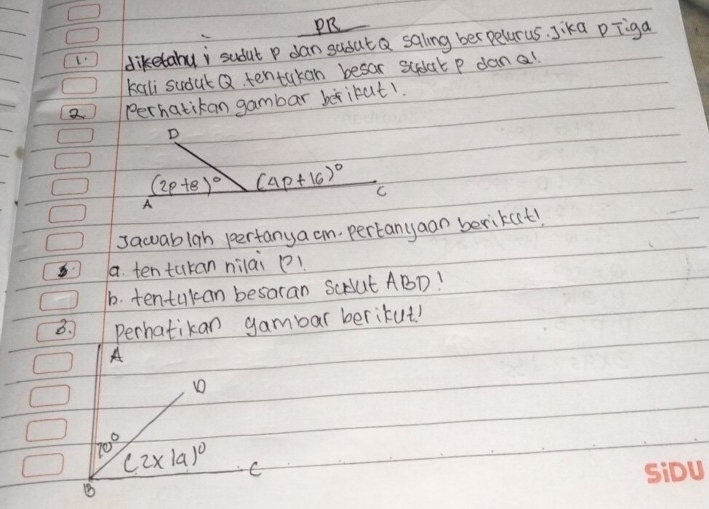 PR
1. diketahui sudut P dan sudut Q saling berpelurus. Jika P Tiga
kali sudut Q. tentukan besar sudut P dan Q!
2 Perhatikan gambar berikut!
D
(2p+8)° (4p+16)°
A C
Jawablah pertanyaan-pertanyaan berikut!
a. tentukan nilai P!
b. tentukan besaran sudut ABD!
3. Perhatikan gambar berikut!
A
D
70°
(2x1a)°
B C
SiDU